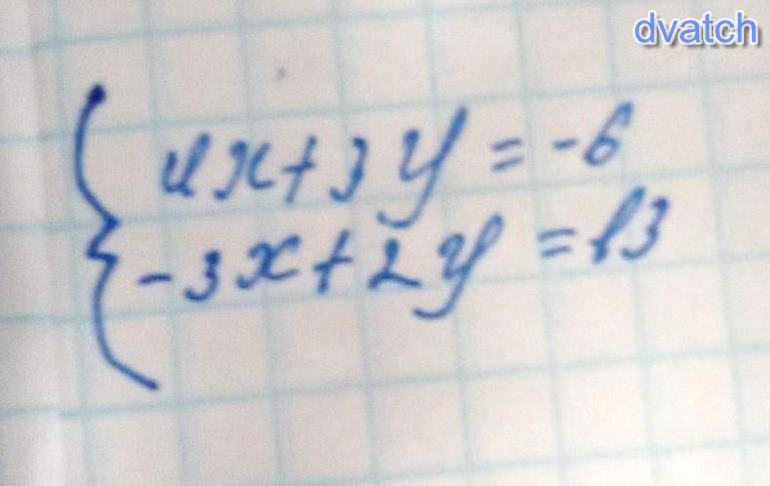 dvatch
4x+3y=-6
-3x+2y=13